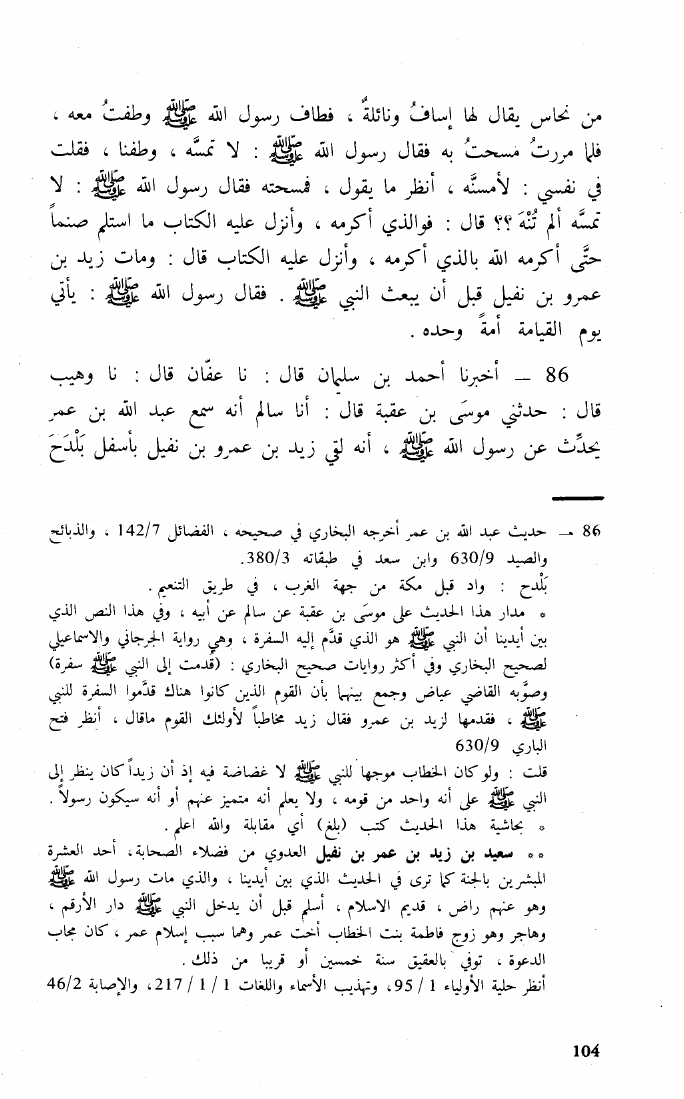 من نحاس يقال لها إسافُ ونائلةُ ، فطاف رسول الله ﷺ وطفتُ معه ،
فلما مررتُ مسحتُ به فقال رسول الله ﷺ : لا تمسَّه ، وطفنا ، فقلت
في نفسي : لأمسنَّه ، أنظر ما يقول ، فمسحته فقال رسول الله ﷺ : لا
تمسَّه ألم تُنْهَ ؟؟ قال : فوالذي أكرمه ، وأنزل عليه الكتاب ما استلم صنماً
حتَّى أكرمه الله بالذي أكرمه ، وأنزل عليه الكتاب قال : ومات زيد بن
عمرو بن نفيل قبل أن يبعث النبي ﷺ . فقال رسول الله ﷺ : يأتي
يوم القيامة أمةً وحده .
86 — أخبرنا أحمد بن سليمان قال : نا عفّان قال : نا وهيب
قال : حدثني موسَى بن عقبة قال : أنا سالم أنه سمع عبد الله بن عمر
يحدِّث عن رسول الله ﷺ ، أنه لقي زيد بن عمرو بن نفيل بأسفل بَلْدَحَ
86 — حديث عبد الله بن عمر أخرجه البخاري في صحيحه ، الفضائل 142/7 ، والذبائح
والصيد 630/9 وابن سعد في طبقاته 380/3.
بَلْدح : واد قبل مكة من جهة الغرب ، في طريق التنعيم .
٥ مدار هذا الحديث على موسَى بن عقبة عن سالم عن أبيه ، وفي هذا النص الذي
بين أيدينا أن النبي ﷺ هو الذي قدَّم إليه السفرة ، وهي رواية الجرجاني والاسماعيلي
لصحيح البخاري وفي أكثر روايات صحيح البخاري : (قُدمت إلى النبي ﷺ سفرة)
وصوَّبه القاضي عياض وجمع بينهما بأن القوم الذين كانوا هناك قدَّموا السفرة للنبي
ﷺ ، فقدمها لزيد بن عمرو فقال زيد مخاطباً لأولئك القوم ماقال ، أنظر فتح
الباري 630/9
قلت : ولو كان الخطاب موجها للنبي ﷺ لا غضاضة فيه إذ أن زيداً كان ينظر إلى
النبي ﷺ على أنه واحد من قومه ، ولا يعلم أنه متميز عنهم أو أنه سيكون رسولاً .
٥ بحاشية هذا الحديث كتب (بلغ) أي مقابلة والله اعلم .
٥٥ سعيد بن زيد بن عمر بن نفيل العدوي من فضلاء الصحابة، أحد العشرة
المبشرين بالجنة كما ترى في الحديث الذي بين أيدينا ، والذي مات رسول الله ﷺ
وهو عنهم راض ، قديم الاسلام ، أسلم قبل أن يدخل النبي ﷺ دار الأرقم ،
وهاجر وهو زوج فاطمة بنت الخطاب أخت عمر وهما سبب إسلام عمر ، كان مجاب
الدعوة ، توفي بالعقيق سنة خمسين أو قريبا من ذلك .
أنظر حلية الأولياء 1 / 95، وتهذيب الأسماء واللغات 1 / 1 / 217، والإصابة 46/2
104